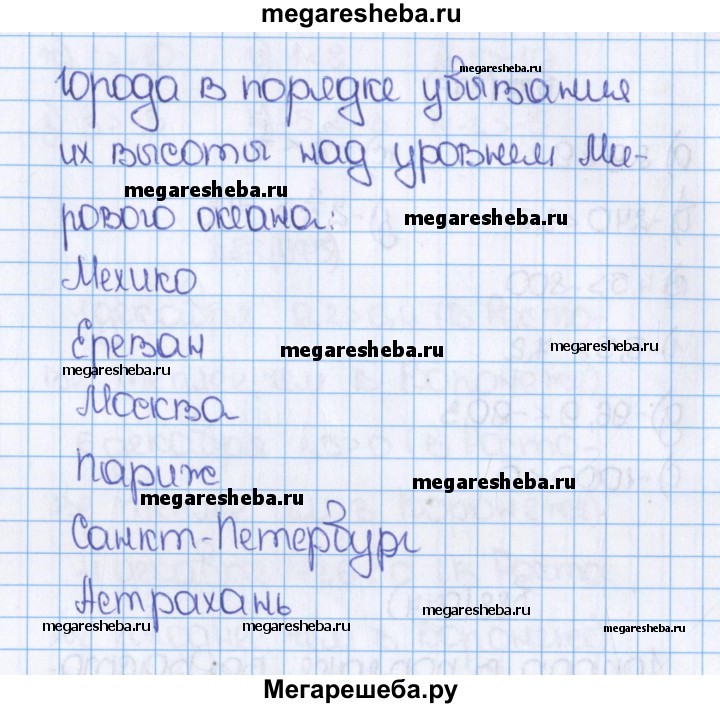 megaresheba.ru
megaresheba.ru
города в порядке убывания
их высоты над уровнем Ми-
megaresheba.ru
megaresheba.ru
рового океана:
Мехико
Ереван
megaresheba.ru
megaresheba.ru
megaresheba.ru
Москва
Париж
megaresheba.ru
megaresheba.ru
Санкт-Петербург
Астрахань
megaresheba.ru
megaresheba.ru
megaresheba.ru
megaresheba.ru
Мегарешеба.ру